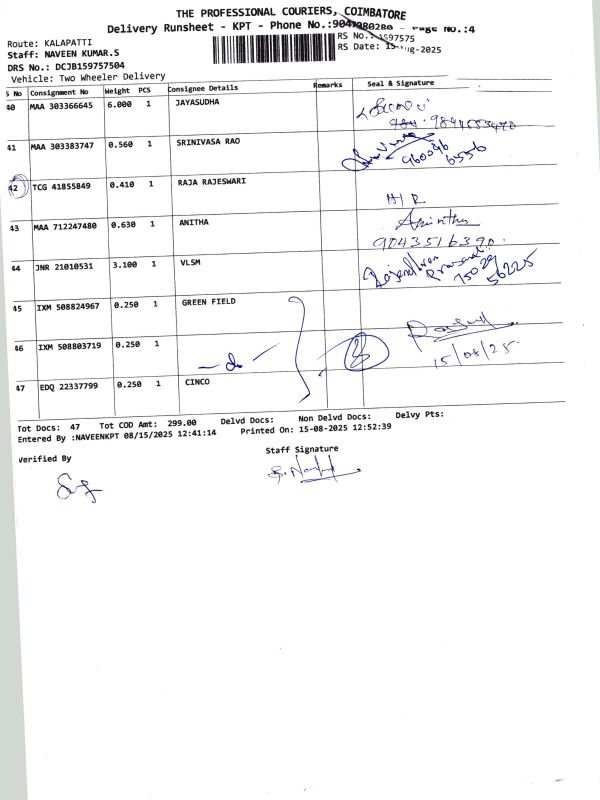 THE PROFESSIONAL COURIERS, COIMBATORE
Delivery Runsheet - KPT - Phone No.: Page No.:4
Route: KALAPATTI
RS No.:
Staff: NAVEEN KUMAR.S
RS Date: 15-Aug-2025
DRS No.: DCJB159757504
Vehicle: Two Wheeler Delivery
S No Consignment No Weight PCS Consignee Details Remarks Seal & Signature
40 MAA 303366645 6.000 1 JAYASUDHA
41 MAA 303383747 0.560 1 SRINIVASA RAO
960046 6556
42 TCG 41855849 0.410 1 RAJA RAJESWARI
H/R
43 MAA 712247480 0.630 1 ANITHA
Anintha
9043516390.
44 JNR 21010531 3.100 1 VLSM
75029
56225
45 IXM 508824967 0.250 1 GREEN FIELD
46 IXM 508803719 0.250 1 — do —
15/08/25.
47 EDQ 22337799 0.250 1 CINCO
Tot Docs: 47 Tot COD Amt: 299.00 Delvd Docs: Non Delvd Docs: Delvy Pts:
Entered By :NAVEENKPT 08/15/2025 12:41:14 Printed On: 15-08-2025 12:52:39
Verified By
Staff Signature